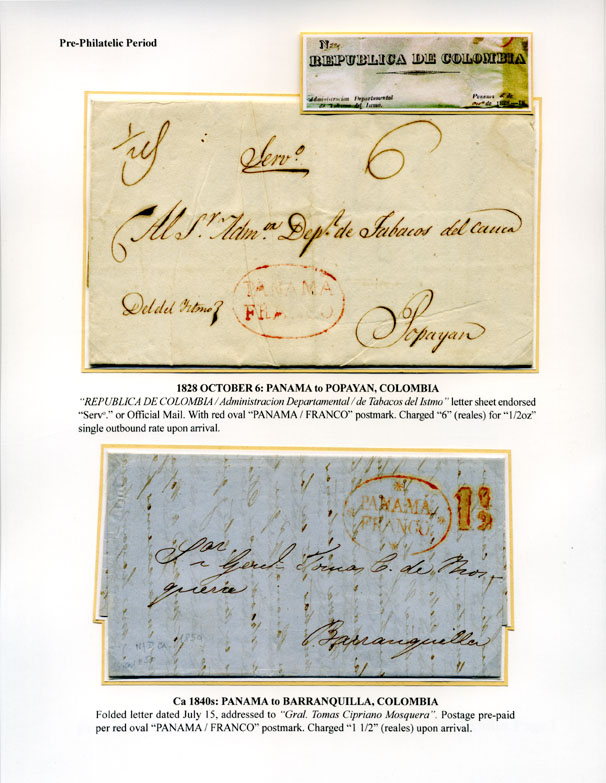 Pre-Philatelic Period
REPUBLICA DE COLOMBIA
Administracion Departamental
de Tabacos del Istmo.
Panamá á
de 182
Servo.
6
Al Sr. Admor. Depl. de Tabacos del Cauca
PANAMA
FRANCO
Del del Istmo
Popayan
1828 OCTOBER 6: PANAMA to POPAYAN, COLOMBIA
"REPUBLICA DE COLOMBIA / Administracion Departamental / de Tabacos del Istmo" letter sheet endorsed
"Servo." or Official Mail. With red oval "PANAMA / FRANCO" postmark. Charged "6" (reales) for "1/2oz"
single outbound rate upon arrival.
PANAMA
FRANCO
1½
Sor
Gral Tomas C. de Mos-
quera
Barranquilla
Ca 1840s: PANAMA to BARRANQUILLA, COLOMBIA
Folded letter dated July 15, addressed to "Gral. Tomas Cipriano Mosquera". Postage pre-paid
per red oval "PANAMA / FRANCO" postmark. Charged "1 1/2" (reales) upon arrival.